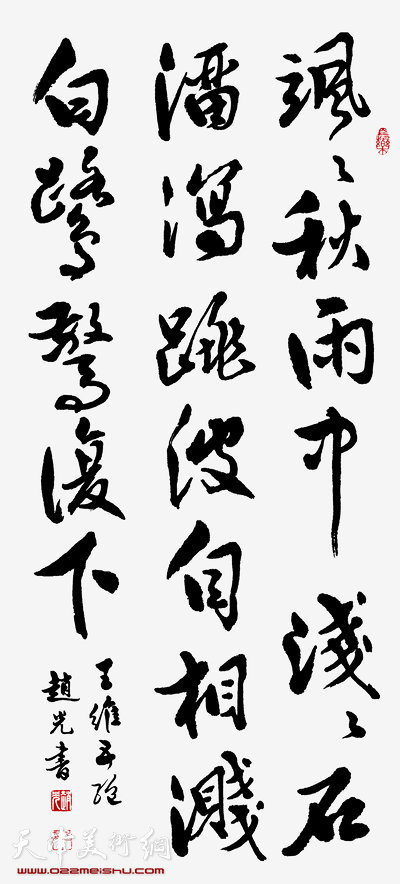 颯〻秋雨中淺〻石
溜瀉跳波自相濺
白鷺驚復下
王維五絕
趙光書
天津美術網
www.022meishu.com